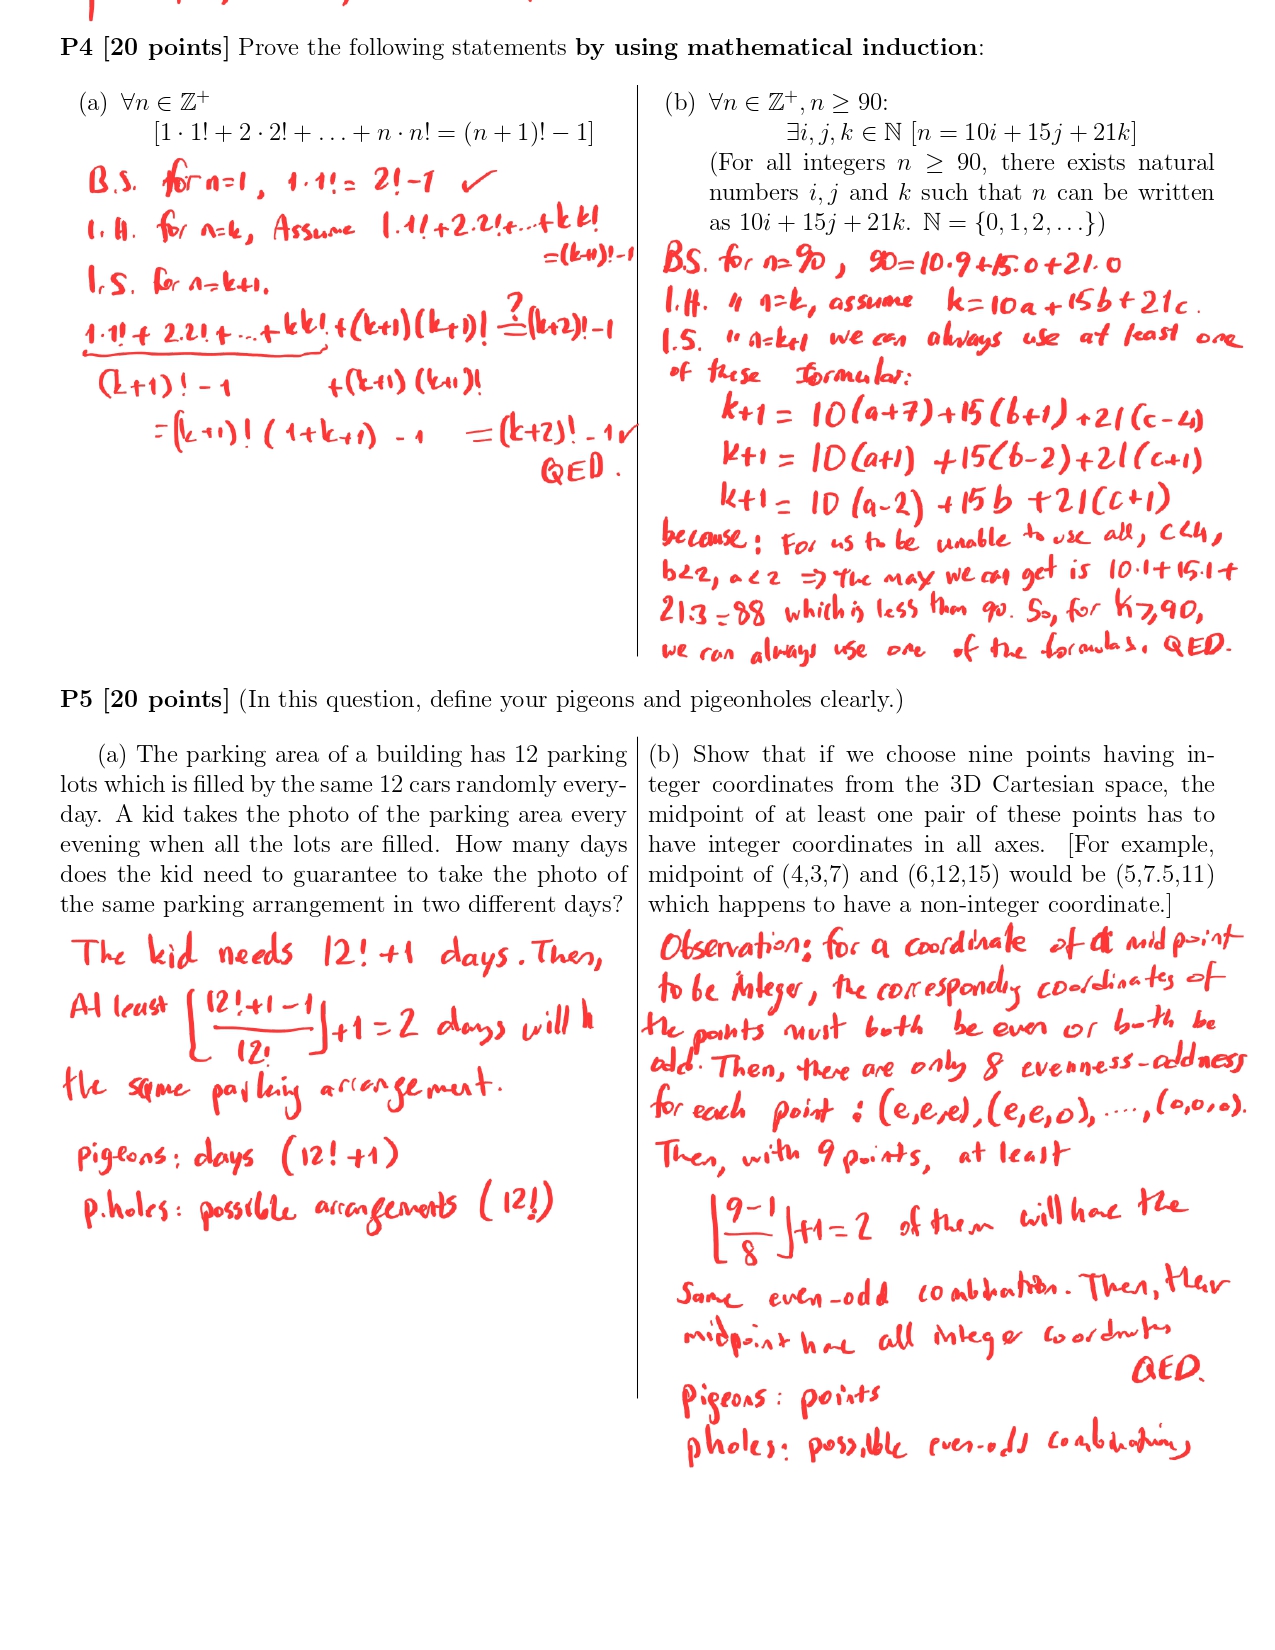 P4 [20 points] Prove the following statements by using mathematical induction:
(a) ∀n ∈ ℤ⁺
[1 · 1! + 2 · 2! + … + n · n! = (n + 1)! − 1]
B.S. for n=1, 1·1! = 2!-1 ✓
I.H. for n=k, Assume 1.1!+2.2!+...+k k!
=(k+1)!-1
I.S. for n=k+1.
1.1!+ 2.2!+...+kk!+(k+1)(k+1)! ?= (k+2)!-1
(k+1)!-1 +(k+1)(k+1)!
=(k+1)! (1+k+1) - 1 =(k+2)!-1✓
QED.
(b) ∀n ∈ ℤ⁺, n ≥ 90:
∃i, j, k ∈ ℕ [n = 10i + 15j + 21k]
(For all integers n ≥ 90, there exists natural
numbers i, j and k such that n can be written
as 10i + 15j + 21k. ℕ = {0, 1, 2, …})
B.S. for n=90, 90=10.9+15.0+21.0
I.H. " n=k, assume k=10a+15b+21c.
I.S. " n=k+1 we can always use at least one
of these formulas:
k+1 = 10(a+7)+15(b+1)+21(c-4)
k+1 = 10(a+1) +15(b-2)+21(c+1)
k+1 = 10(a-2) +15b +21(c+1)
because: For us to be unable to use all, c<4,
b<2, a<2 ⇒ the max we can get is 10.1+15.1+
21.3=88 which is less than 90. So, for k≥90,
we can always use one of the formulas. QED.
P5 [20 points] (In this question, define your pigeons and pigeonholes clearly.)
(a) The parking area of a building has 12 parking
lots which is filled by the same 12 cars randomly every-
day. A kid takes the photo of the parking area every
evening when all the lots are filled. How many days
does the kid need to guarantee to take the photo of
the same parking arrangement in two different days?
The kid needs 12!+1 days. Then,
At least ⌊(12!+1-1)/12!⌋+1=2 days will h
the same parking arrangement.
pigeons: days (12!+1)
p.holes: possible arrangements (12!)
(b) Show that if we choose nine points having in-
teger coordinates from the 3D Cartesian space, the
midpoint of at least one pair of these points has to
have integer coordinates in all axes. [For example,
midpoint of (4,3,7) and (6,12,15) would be (5,7.5,11)
which happens to have a non-integer coordinate.]
Observation: for a coordinate of a midpoint
to be integer, the correspondig coordinates of
the points must both be even or both be
odd. Then, there are only 8 evenness-oddness
for each point : (e,e,e),(e,e,o),....,(o,o,o).
Then, with 9 points, at least
⌊(9-1)/8⌋+1=2 of them will have the
same even-odd combination. Then, their
midpoint have all integer coordinates
QED.
pigeons: points
pholes: possible even-odd combinations